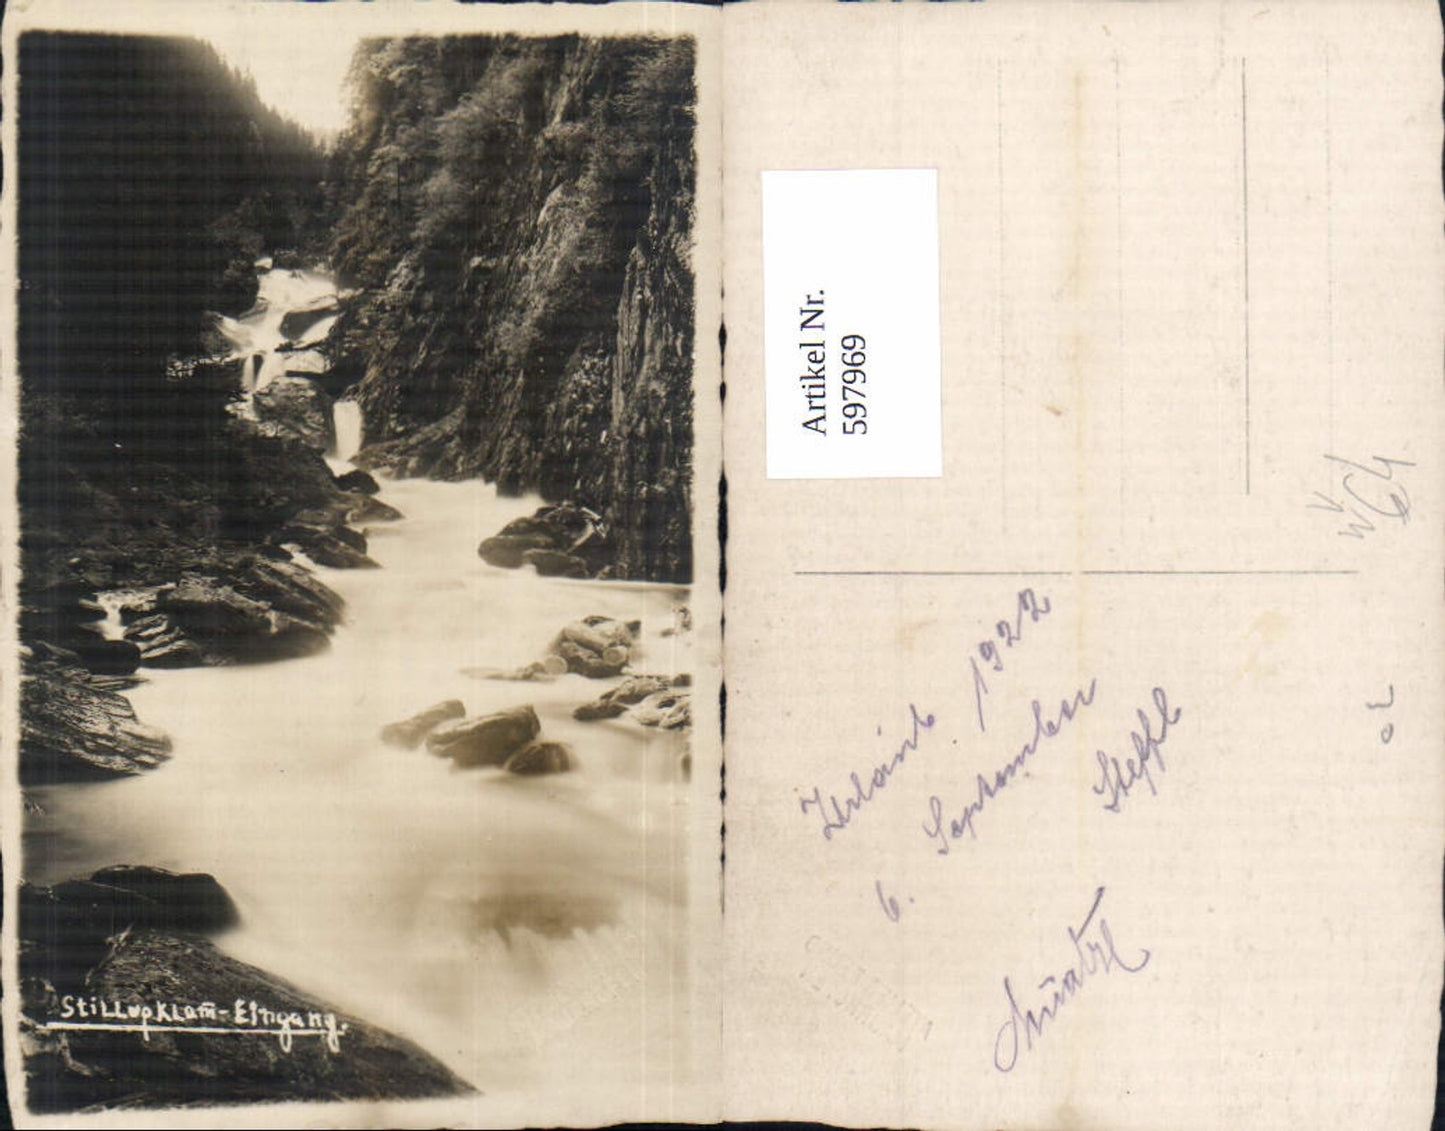 Stillupklam̄-Eingang.
Artikel Nr.
597969
Urlaub 1922
6. September
Steffl